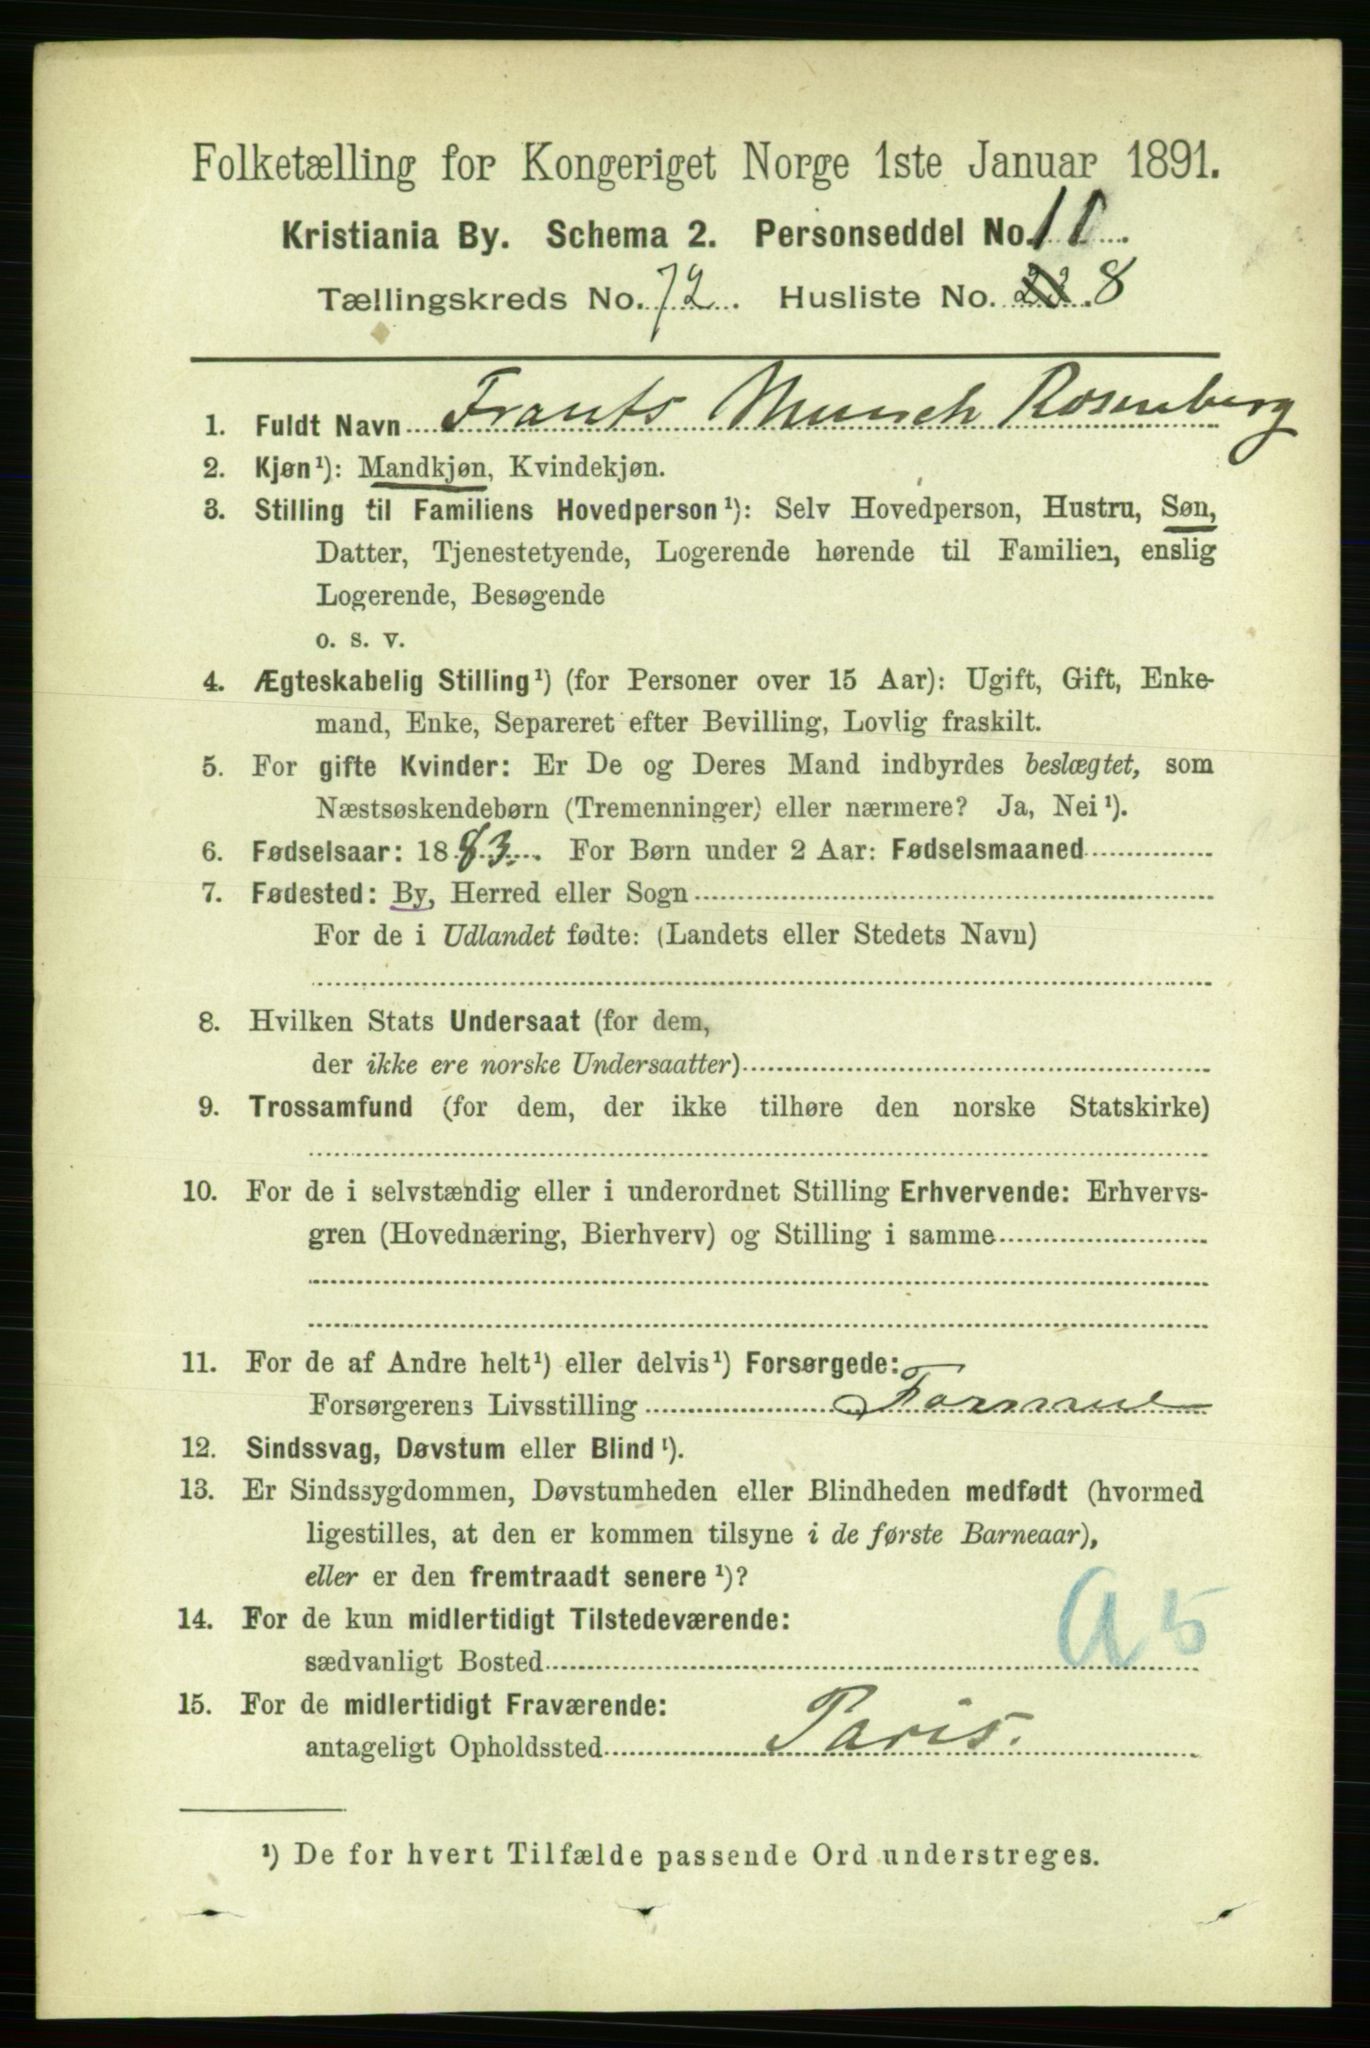 Folketælling for Kongeriget Norge 1ste Januar 1891.
Kristiania By. Schema 2. Personseddel No. 10
Tællingskreds No. 72. Husliste No. 22. 8
1. Fuldt Navn Frants Munch Rosenberg
2. Kjøn¹): Mandkjøn, Kvindekjøn.
3. Stilling til Familiens Hovedperson¹): Selv Hovedperson, Hustru, Søn,
Datter, Tjenestetyende, Logerende hørende til Familien, enslig
Logerende, Besøgende
o. s. v.
4. Ægteskabelig Stilling¹) (for Personer over 15 Aar): Ugift, Gift, Enke-
mand, Enke, Separeret efter Bevilling, Lovlig fraskilt.
5. For gifte Kvinder: Er De og Deres Mand indbyrdes beslægtet, som
Næstsøskendebørn (Tremenninger) eller nærmere? Ja, Nei¹).
6. Fødselsaar: 1883. For Børn under 2 Aar: Fødselsmaaned
7. Fødested: By, Herred eller Sogn
For de i Udlandet fødte: (Landets eller Stedets Navn)
8. Hvilken Stats Undersaat (for dem,
der ikke ere norske Undersaatter)
9. Trossamfund (for dem, der ikke tilhøre den norske Statskirke)
10. For de i selvstændig eller i underordnet Stilling Erhvervende: Erhvervs-
gren (Hovednæring, Bierhverv) og Stilling i samme
11. For de af Andre helt¹) eller delvis¹) Forsørgede:
Forsørgerens Livsstilling
12. Sindssvag, Døvstum eller Blind¹).
13. Er Sindssygdommen, Døvstumheden eller Blindheden medfødt (hvormed
ligestilles, at den er kommen tilsyne i de første Barneaar),
eller er den fremtraadt senere¹)?
14. For de kun midlertidigt Tilstedeværende:
sædvanligt Bosted
a 5
15. For de midlertidigt Fraværende:
antageligt Opholdssted Paris.
¹) De for hvert Tilfælde passende Ord understreges.